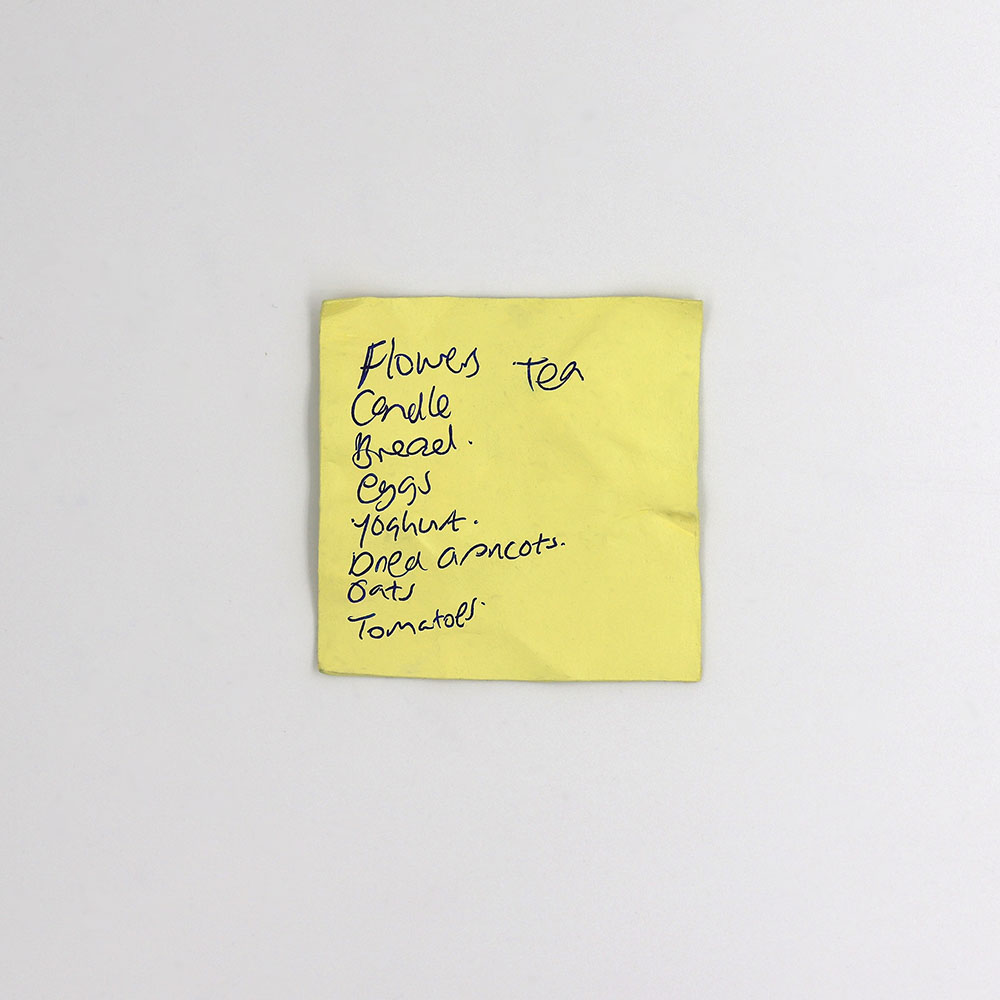 Flowers Tea
Candle
Bread.
eggs
Yoghurt.
Dried apricots.
Oats
Tomatoes.